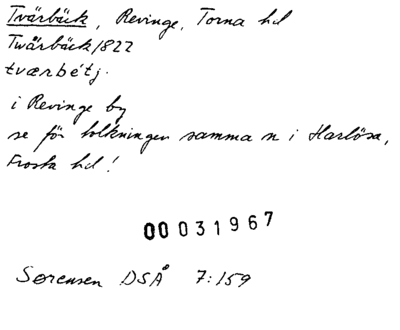 Tvärbäck, Revinge, Torna hd
Twärbäck 1822
tværbétj.
i Revinge by
se för tolkningen samma n i Harlösa,
Frosta hd!
00031967
Sørensen DSÅ 7:159